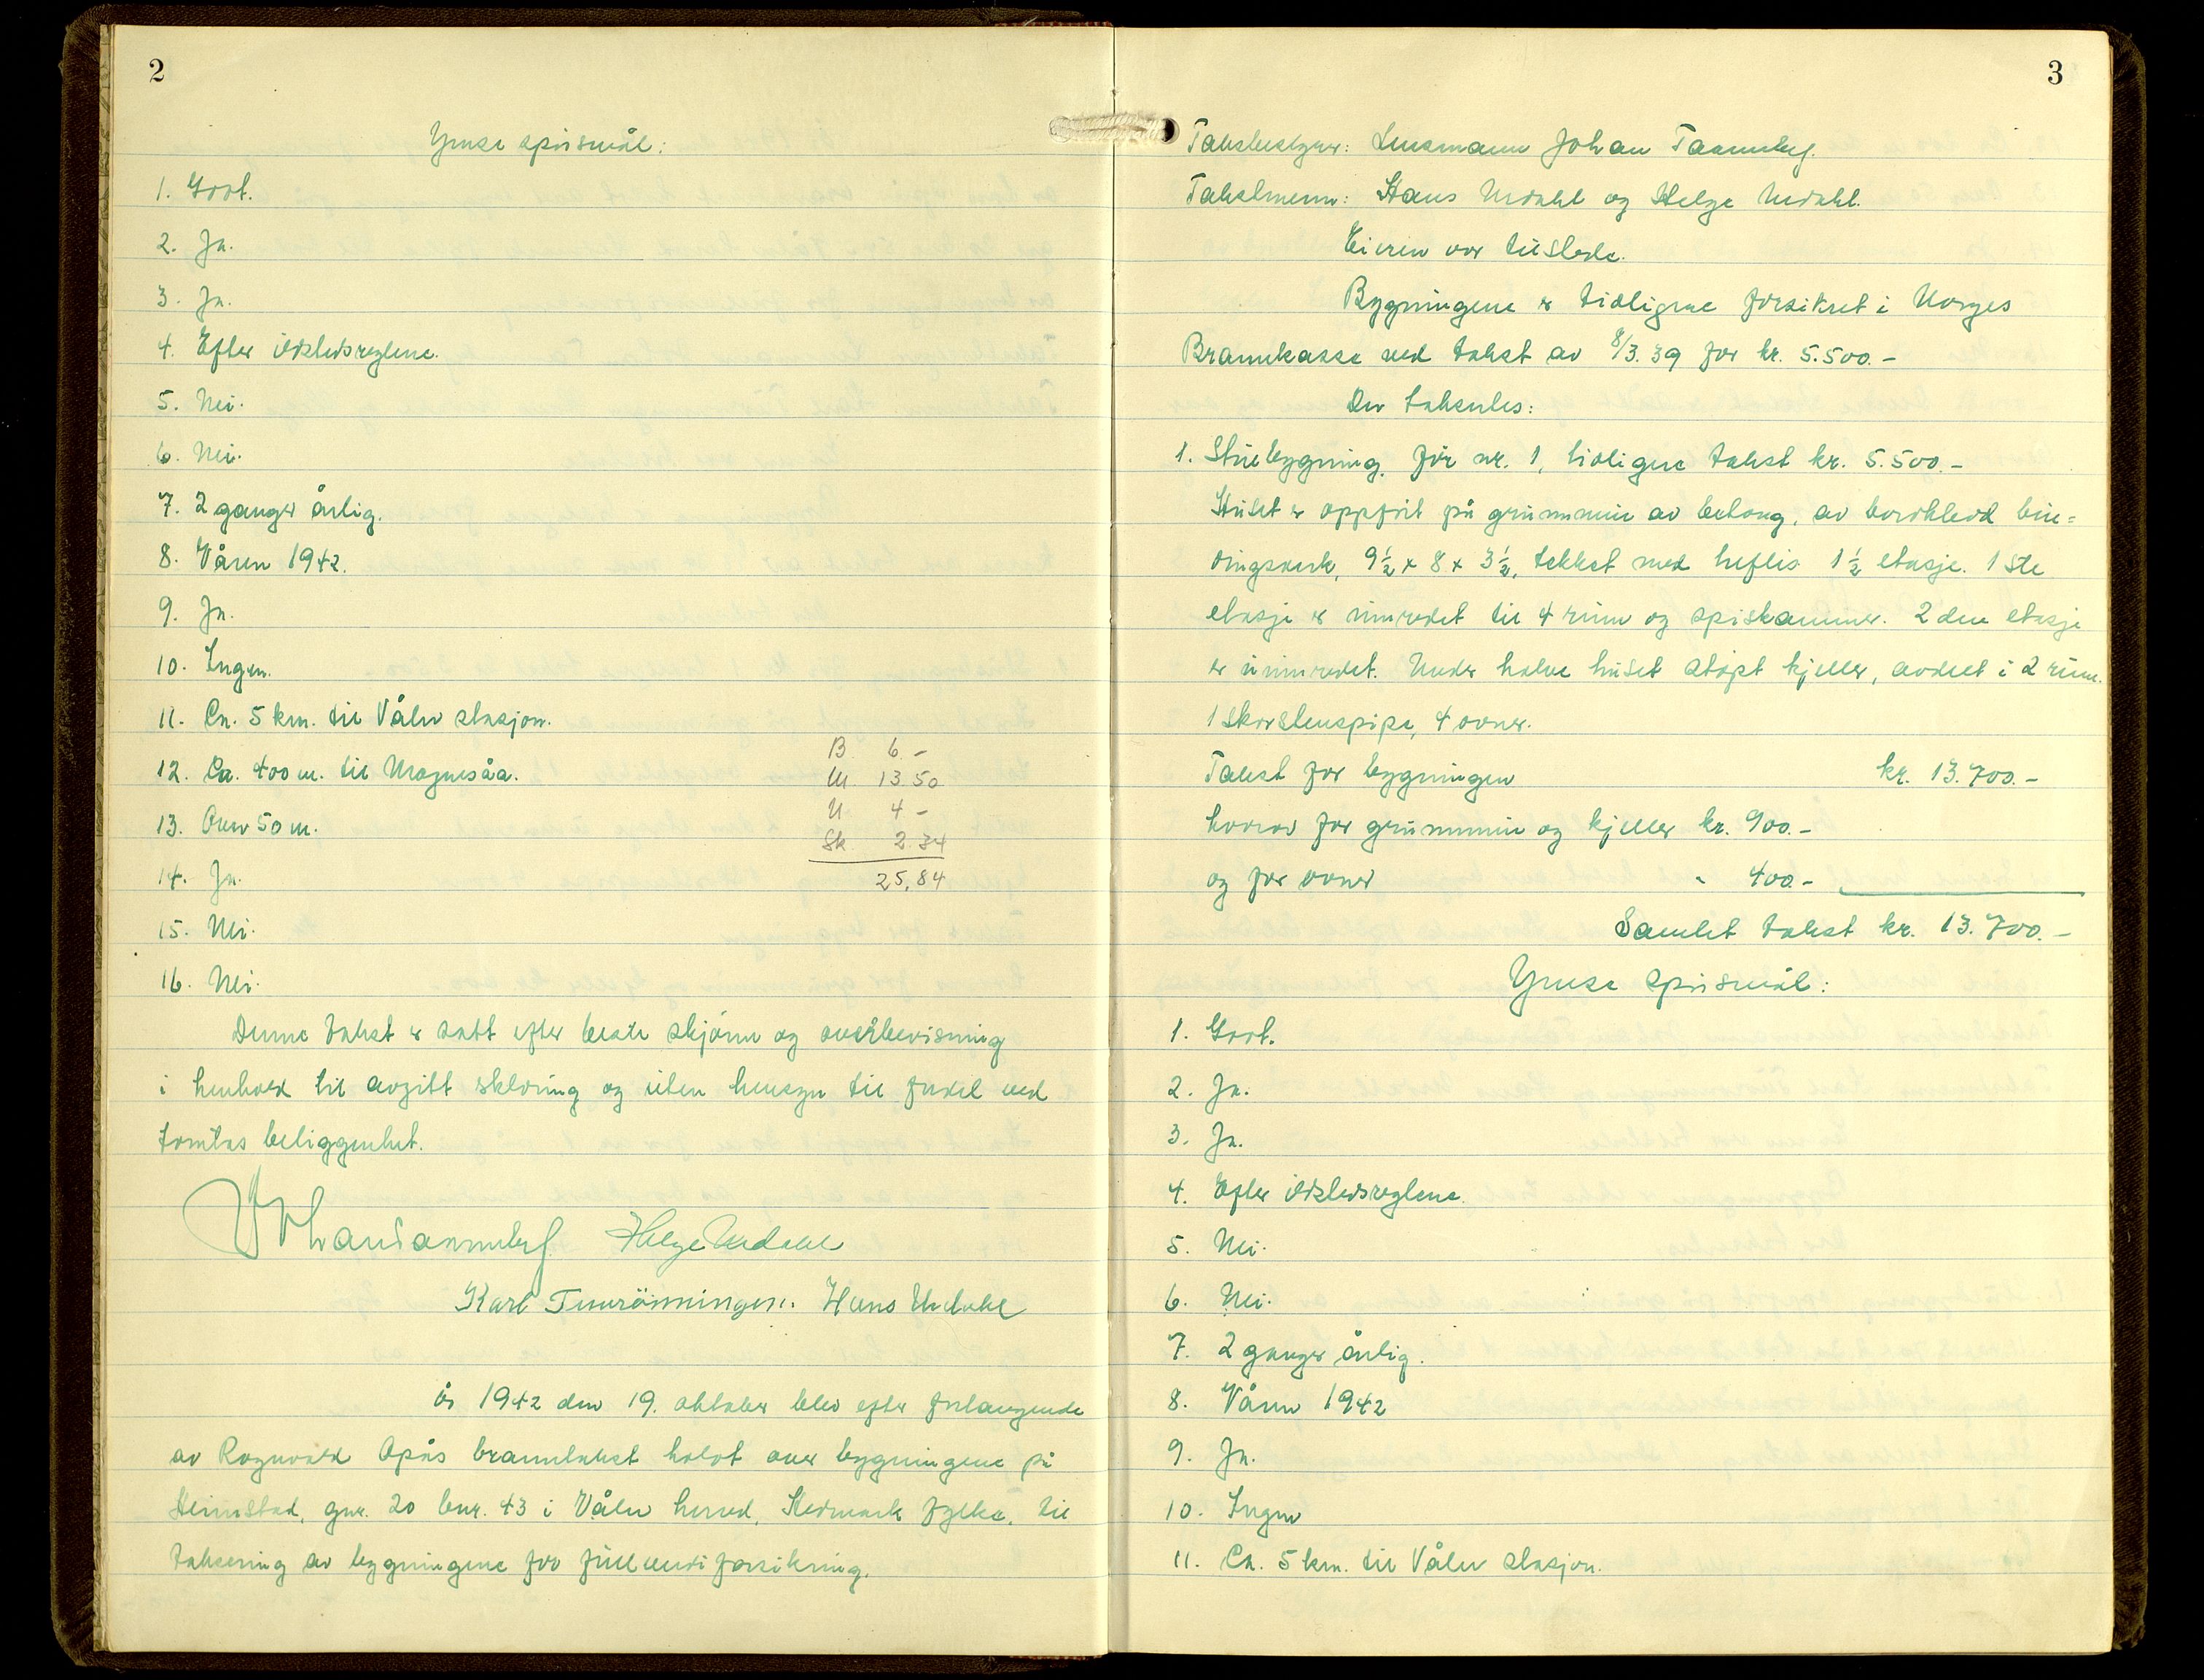 2
Ymse spørsmål:
1. Godt.
2. Ja.
3. Ja.
4. Efter ildstedsreglene.
5. Nei.
6. Nei.
7. 2 ganger årlig.
8. Våren 1942.
9. Ja.
10. Ingen.
11. Ca. 5 km. til Våler stasjon.
12. Ca. 400 m. til Mognesåa.
13. Over 50 m.
14. Ja.
15. Nei.
16. Nei.
B 6.-
M. 13.50
U 4-
Sk 2.34
25,84
Denne takst er satt efter beste skjønn og overbevisning
i henhold til avgitt erklæring og uten hensyn til fordel ved
tomtas beliggenhet.
Johan Tannneberg Helge Urdahl
Karl Hans Urdahl
År 1942 den 19. oktober blev efter forlangende
av Ragnvald Opås branntakst holdt over bygningene på
Heimstad, gnr. 20 bnr. 43 i Våler herred, Hedmark fylke, til
taksering av bygningene for fullverdiforsikring.
3
Takstbestyrer: Lensmann Johan Tannneberg.
Takstmenn: Hans Urdahl og Helge Urdahl.
Eieren var tilstede.
Bygningene er tidligere forsikret i Norges
Brannkasse ved takst av 8/3. 39 for kr. 5.500.-
Der takseres:
1. Stuebygning, før nr. 1, tidligere takst kr. 5.500.-
Huset er oppført på grunnmur av betong, av bordkledd bin=
dingsverk, 9½ x 8 x 3½, tekket med høflis. 1½ etasje. 1ste
etasje er innredet til 4 rum og spiskammer. 2den etasje
er uinnredet. Under halve huset støpt kjeller, avdelt i 2 rum.
1 skorstenspipe, 4 ovner.
Takst for bygningen kr. 13.700.-
hvorav for grunnmur og kjeller kr. 900.-
og for ovner " 400.-
Samlet takst kr. 13.700.-
Ymse spørsmål:
1. Godt.
2. Ja.
3. Ja.
4. Efter ildstedsreglene.
5. Nei.
6. Nei.
7. 2 ganger årlig.
8. Våren 1942
9. Ja.
10. Ingen
11. Ca. 5 km. til Våler stasjon.